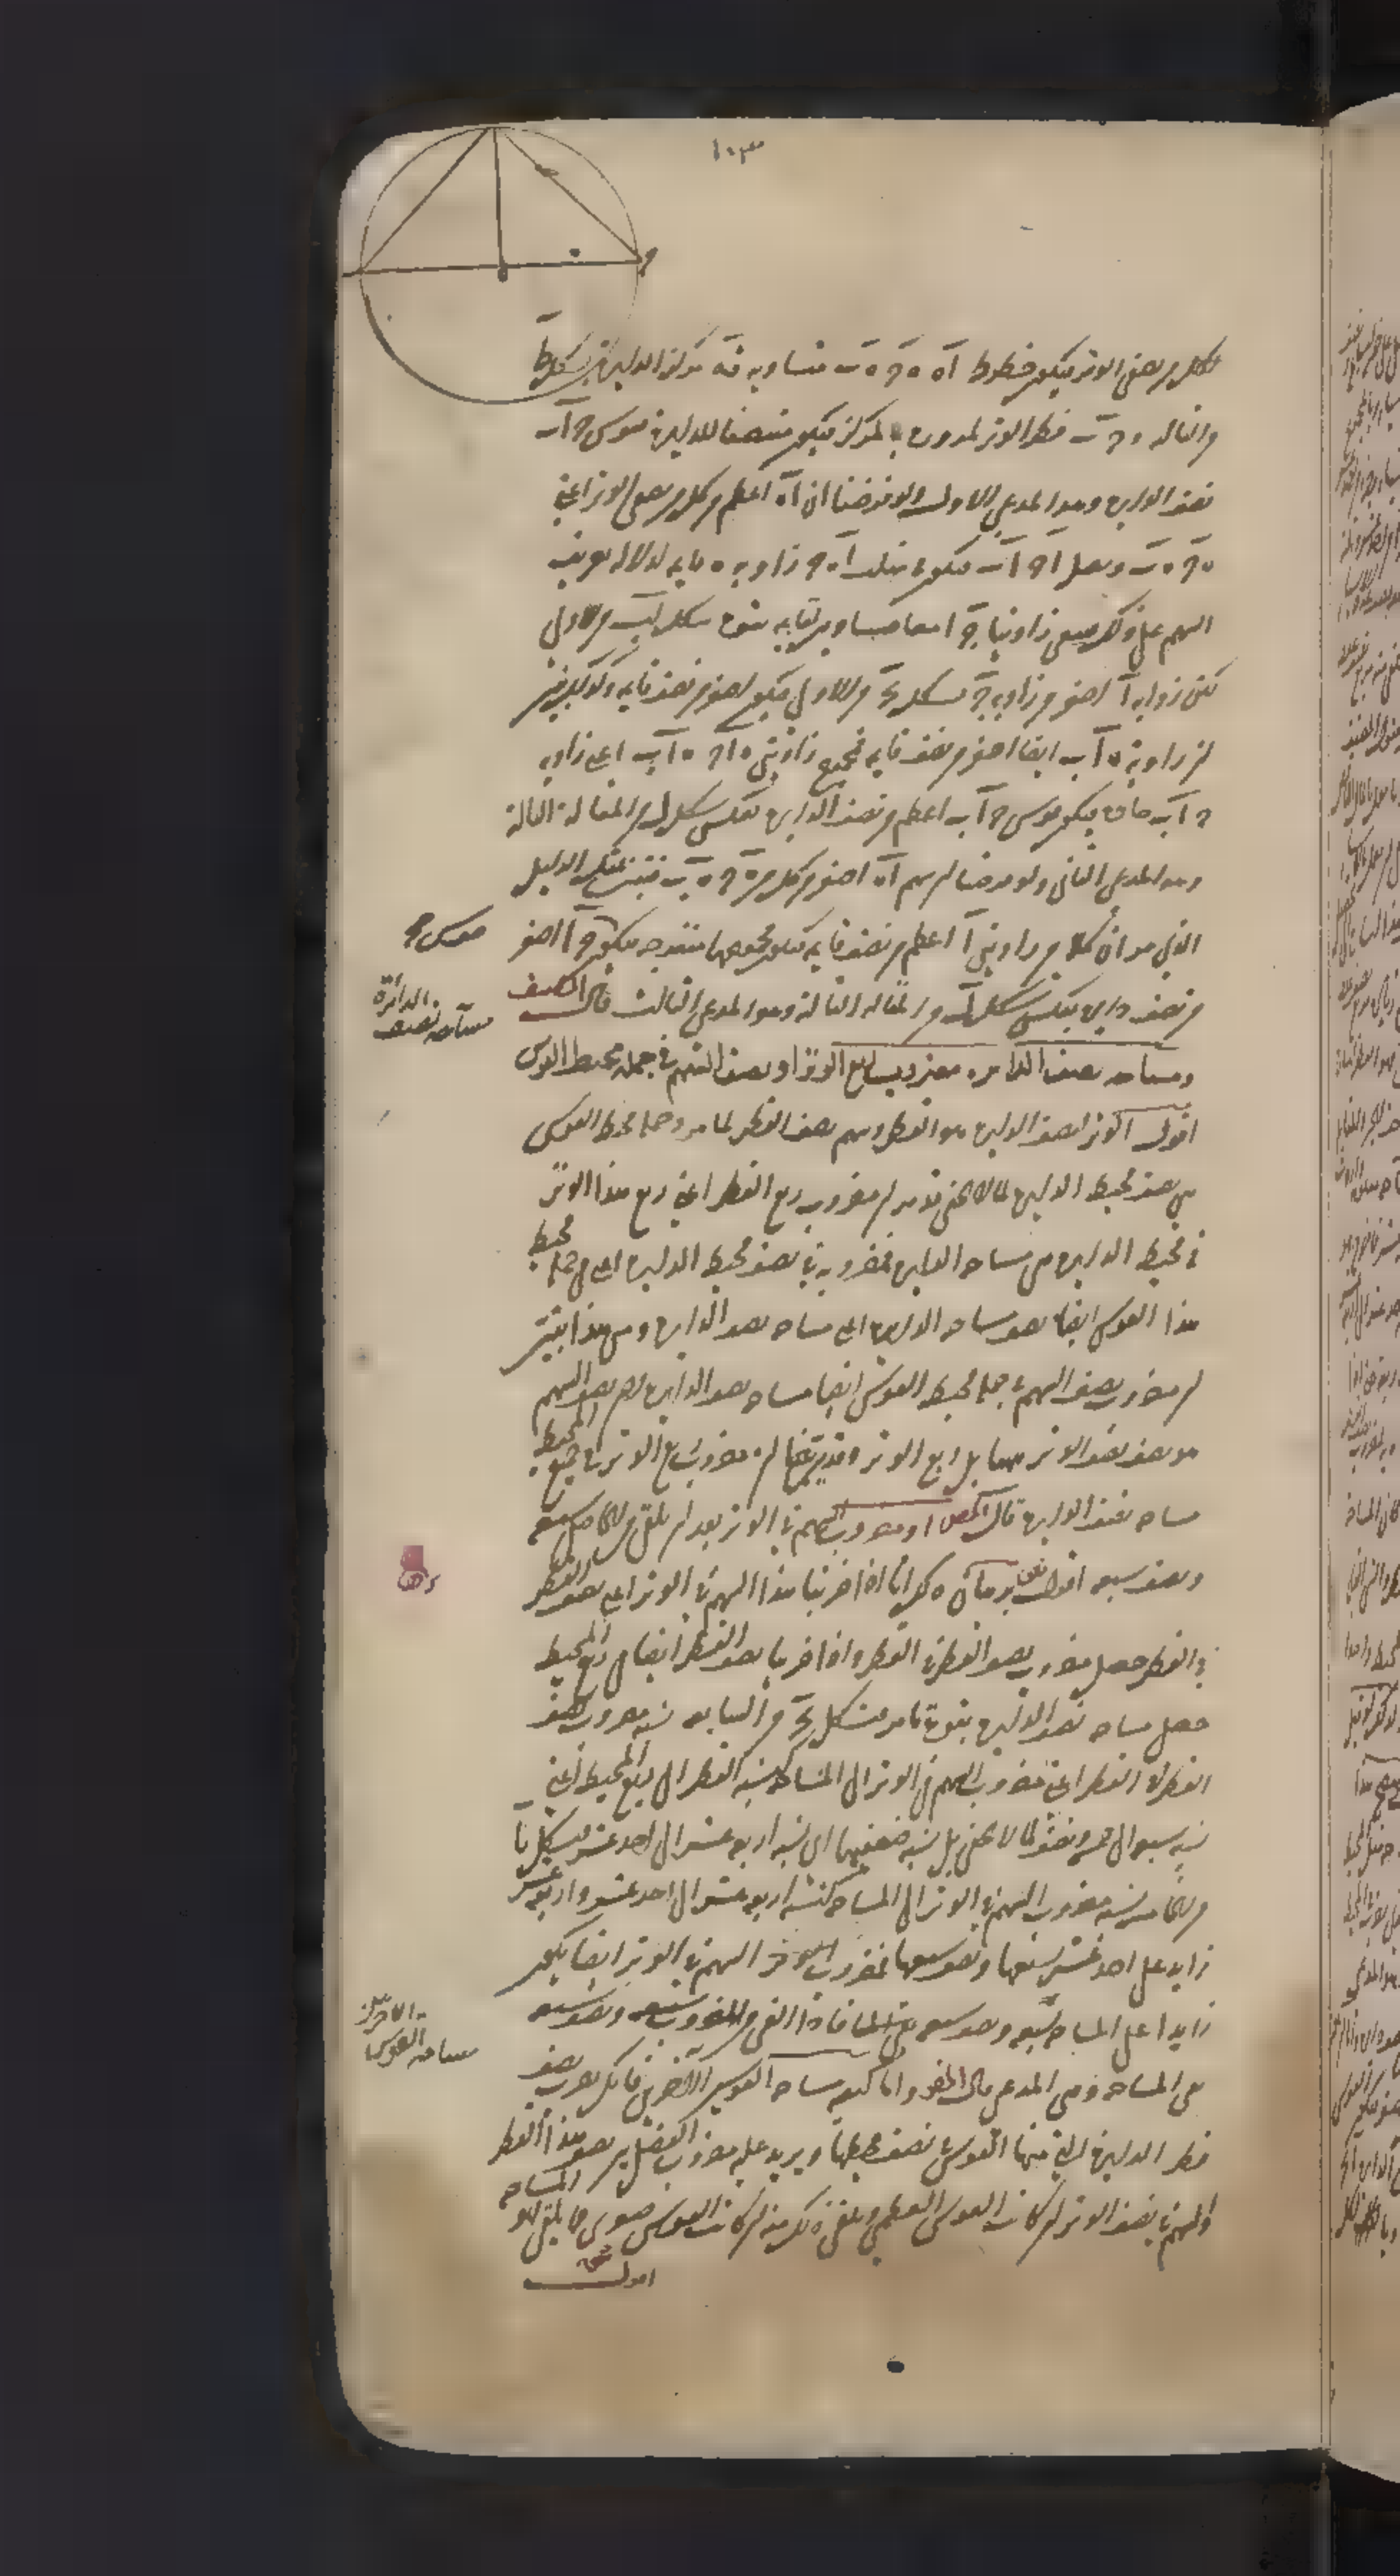 ١٠٣
لكل من نصفي الوتر فيكون خطوط آه ه ج ه ب متساوية فه مركز الدايرة بشكل ط
من الثالثة و ج ب قطر الوتر لمروره بالمركز فيكون منصفا للدايرة فقوس ج آ ب
نصف الدايرة وهو المدعى الاول ولو فرضنا ان آه اعظم من كل من نصفي الوتر اعني
ه ج ه ب ونصل آ ج آ ب فيكون مثلث آ ه ج زاوية ه قايمة لدلالة تعريف
السهم على ذلك فبقي زاويتا ج آ معا مساويتين لقايمة
لكن زاوية آ اصغر من زاوية ج بشكل يح من الاولى فيكون اصغر من نصف قايمة وكذلك نبين
ان زاوية ه آ ب ايضا اصغر من نصف قايمة فجميع زاويتي ه آ ج ه آ ب اعني زاوية
ج آ ب حادة فيكون قوس ج آ ب اعظم من نصف الدايرة بعكس شكل ل من المقالة الثالثة
وهو المدعى الثاني ولو فرضنا ان سهم آه اصغر من كل من ه ج ه ب فنبين بمثل الدليل
الذي مر ان كلا من زاويتي آ اعظم من نصف قايمة فيكون مجموعهما منفرجة فيكون ج آ اصغر
فقوس ج
من نصف دايرة بعكس شكل ل من المقالة الثالثة وهو المدعى الثالث قال المصنف
مساحة نصف الدائرة
ومساحة نصف الدايرة مضروب ربع الوتر او نصف السهم في جملة محيط القوس
اقول الوتر لنصف الدايرة هو القطر وسهمه نصف القطر لما مر وجملة محيط القوس
هي نصف محيط الدايرة لما لا يخفى وقد مر ان مضروب ربع القطر اعني ربع هذا الوتر
في محيط الدايرة هي مساحة الدايرة فمضروبه في نصف محيط الدايرة اعني في جملة محيط
هذا القوس ايضا نصف مساحة الدايرة اعني مساحة نصف الدايرة ومن هذا تبين
ان مضروب نصف السهم في جملة محيط القوس ايضا مساحة نصف الدايرة لان نصف السهم
هو نصف نصف الوتر بل ربع الوتر وقد مر ان مضروب ربع الوتر في جميع المحيط
مساحة نصف الدايرة قال المص او مضروب السهم في الوتر بعد ان يلقى من الحاصل سبعه
ونصف سبعه اقول برهان ذلك انا اذا ضربنا هذا السهم في الوتر اعني نصف القطر
في القطر حصل مضروب نصف القطر في القطر واذا ضربنا نصف القطر ايضا في ربع المحيط
حصل مساحة نصف الدايرة بقوة ما مر فبشكل يح من السابعة نسبة مضروب نصف
القطر في القطر اعني مضروب السهم في الوتر الى المساحة كنسبة القطر الى ربع المحيط اعني
نسبة سبعة الى خمسة ونصف لما لا يخفى بل نسبة ضعفيهما اي نسبة اربعة عشر الى احد عشر فبشكل يا
من الخامسة نسبة مضروب السهم في الوتر الى المساحة كنسبة اربعة عشر الى احد عشر واربعة عشر
زايد على احد عشر بسبعها ونصف سبعها فمضروب السهم في الوتر ايضا يكون
زايدا على المساحة بسبعه ونصف سبعه فاذا القي من المضروب سبعه ونصف سبعه
مساحة القوسين الاخرين
بقى المساحة وهي المدعى قال المص واما كيفية مساحة القوسين الاخريين فانك تضرب نصف
قطر الدايرة التي منها القوس في نصف محيطها ويزيد عليه مضروب الفضل بين نصف هذا القطر
والسهم في نصف الوتر ان كانت القوس العظمى ويلقى ذلك منه ان كانت القوس صغرى فما بلغ فهو المساحة
اقول